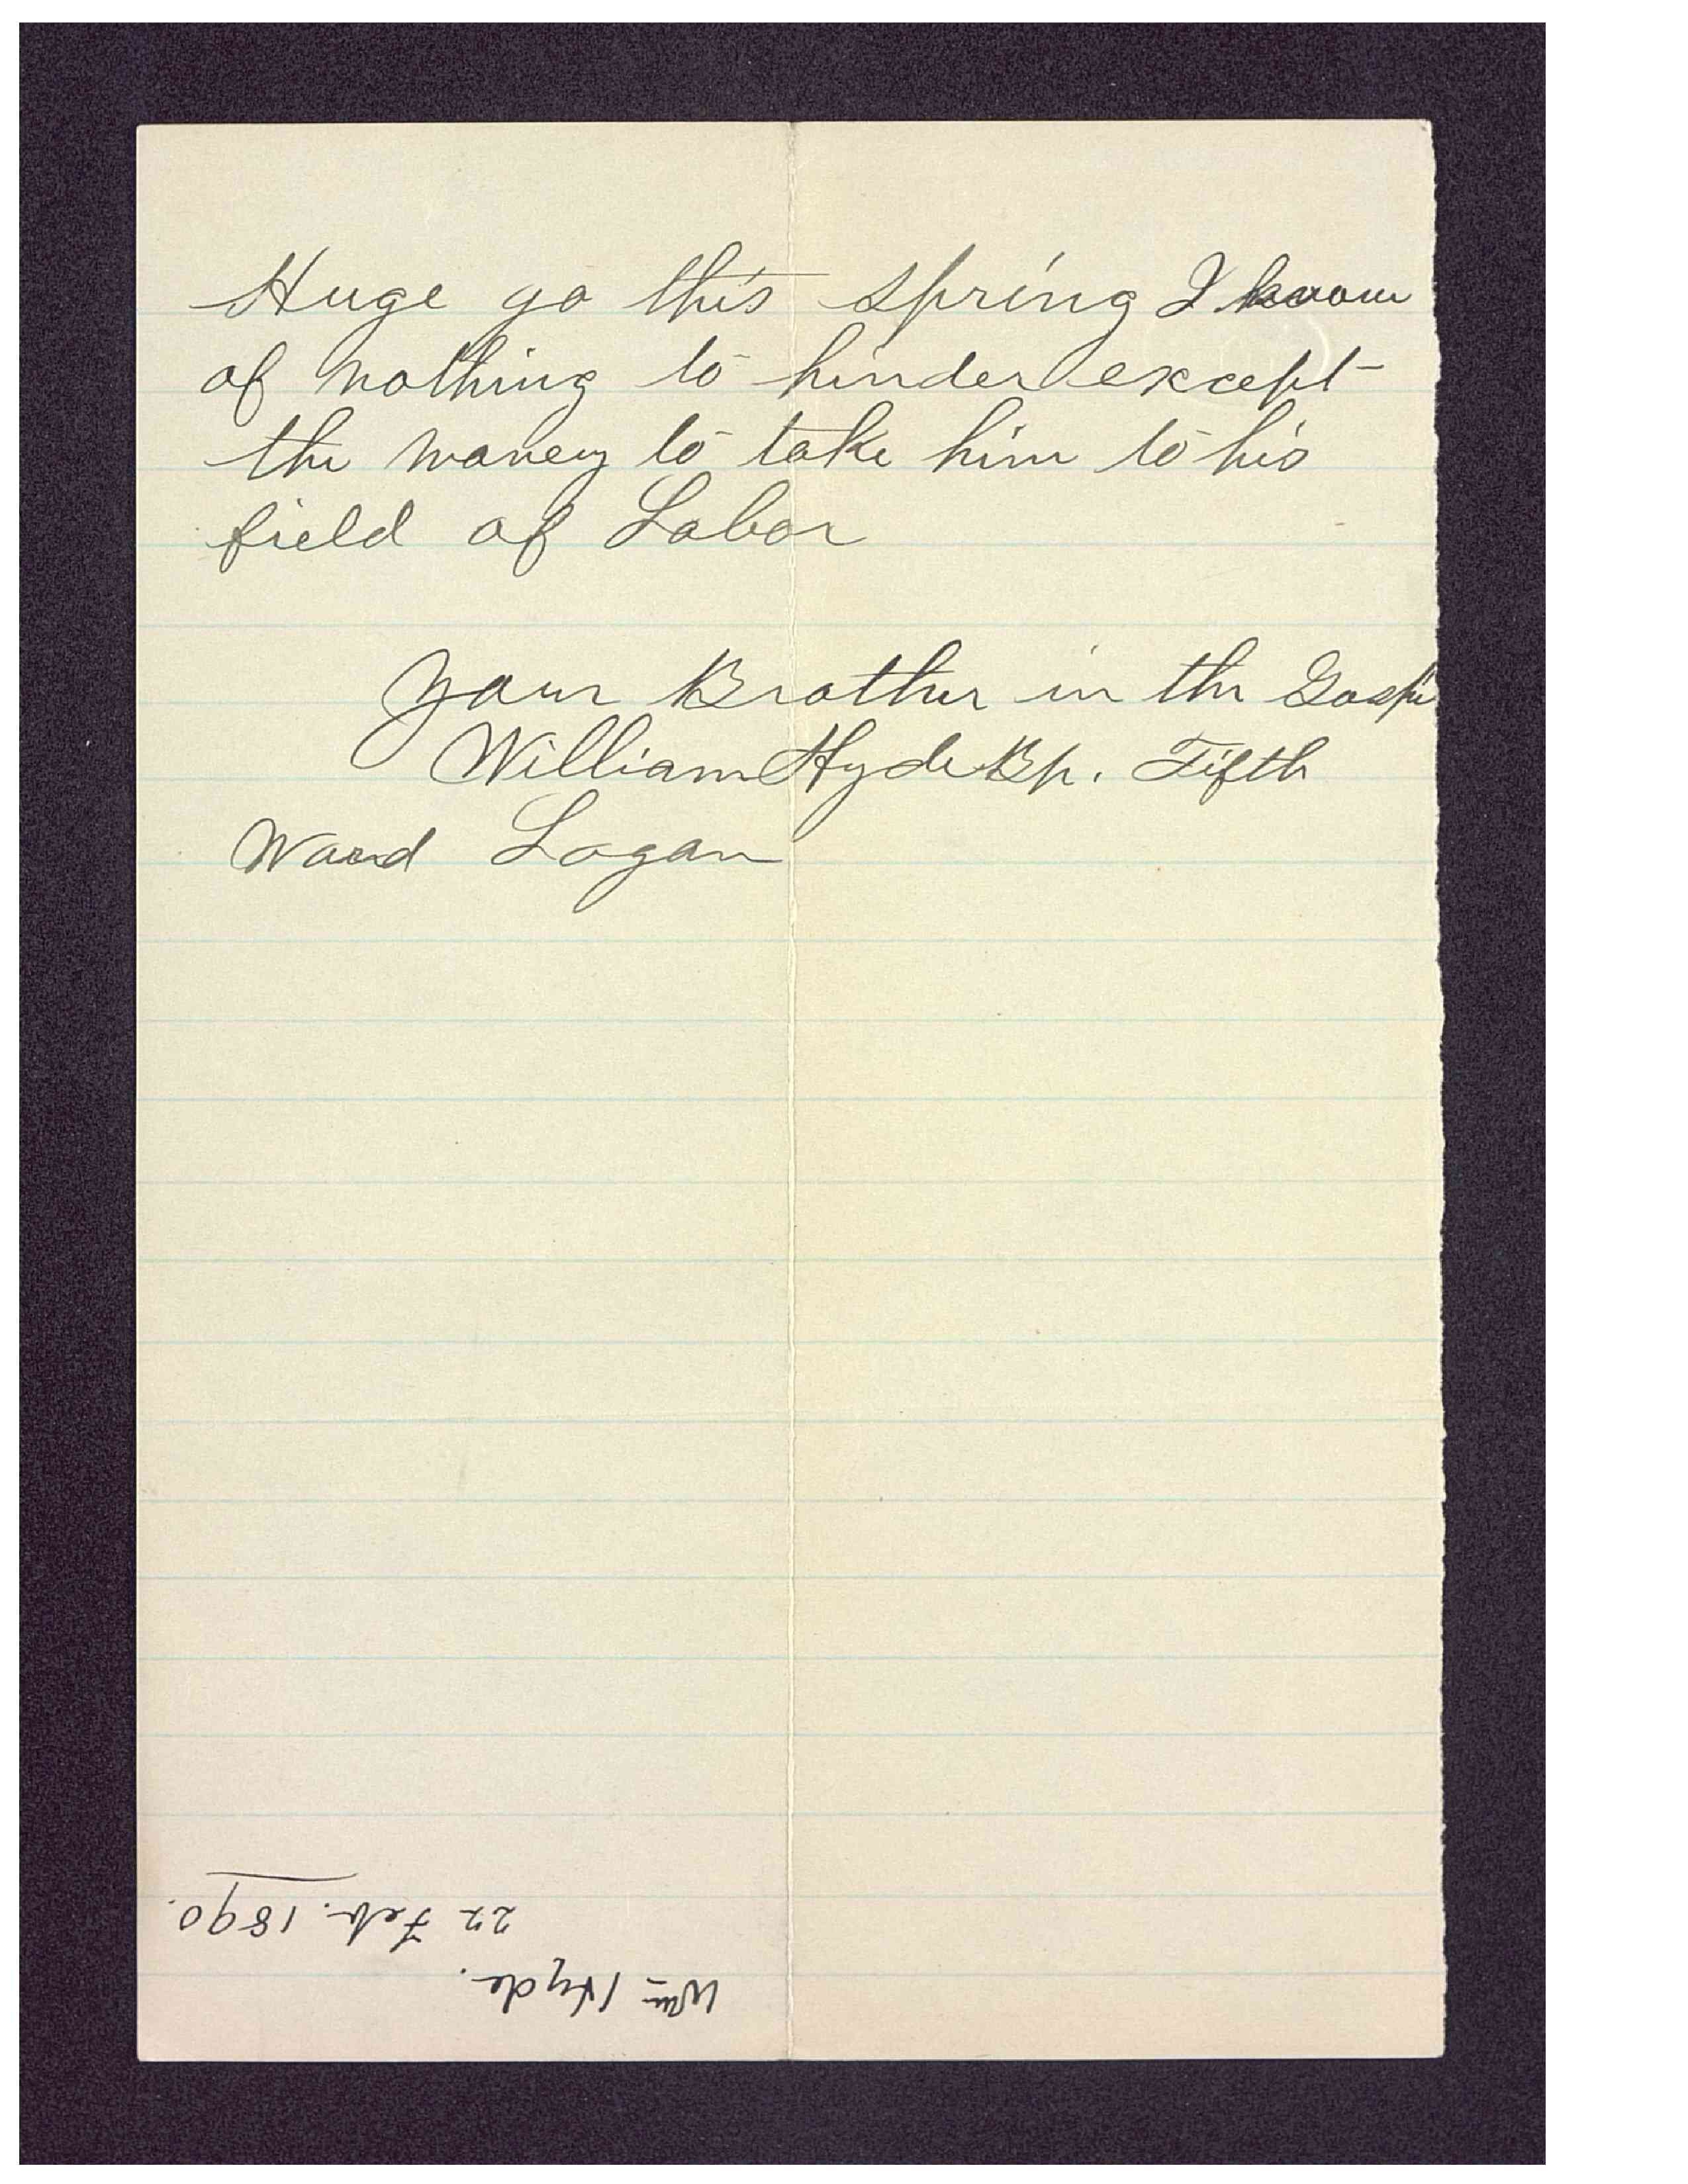 Huge go this spring I know
of nothing to hinder except
the money to take him to his
field of Labor
Your Brother in the Gospe
William Hyde Bp. Fifth
Ward Logan
Wm Hyde.
22 Feb. 1890.